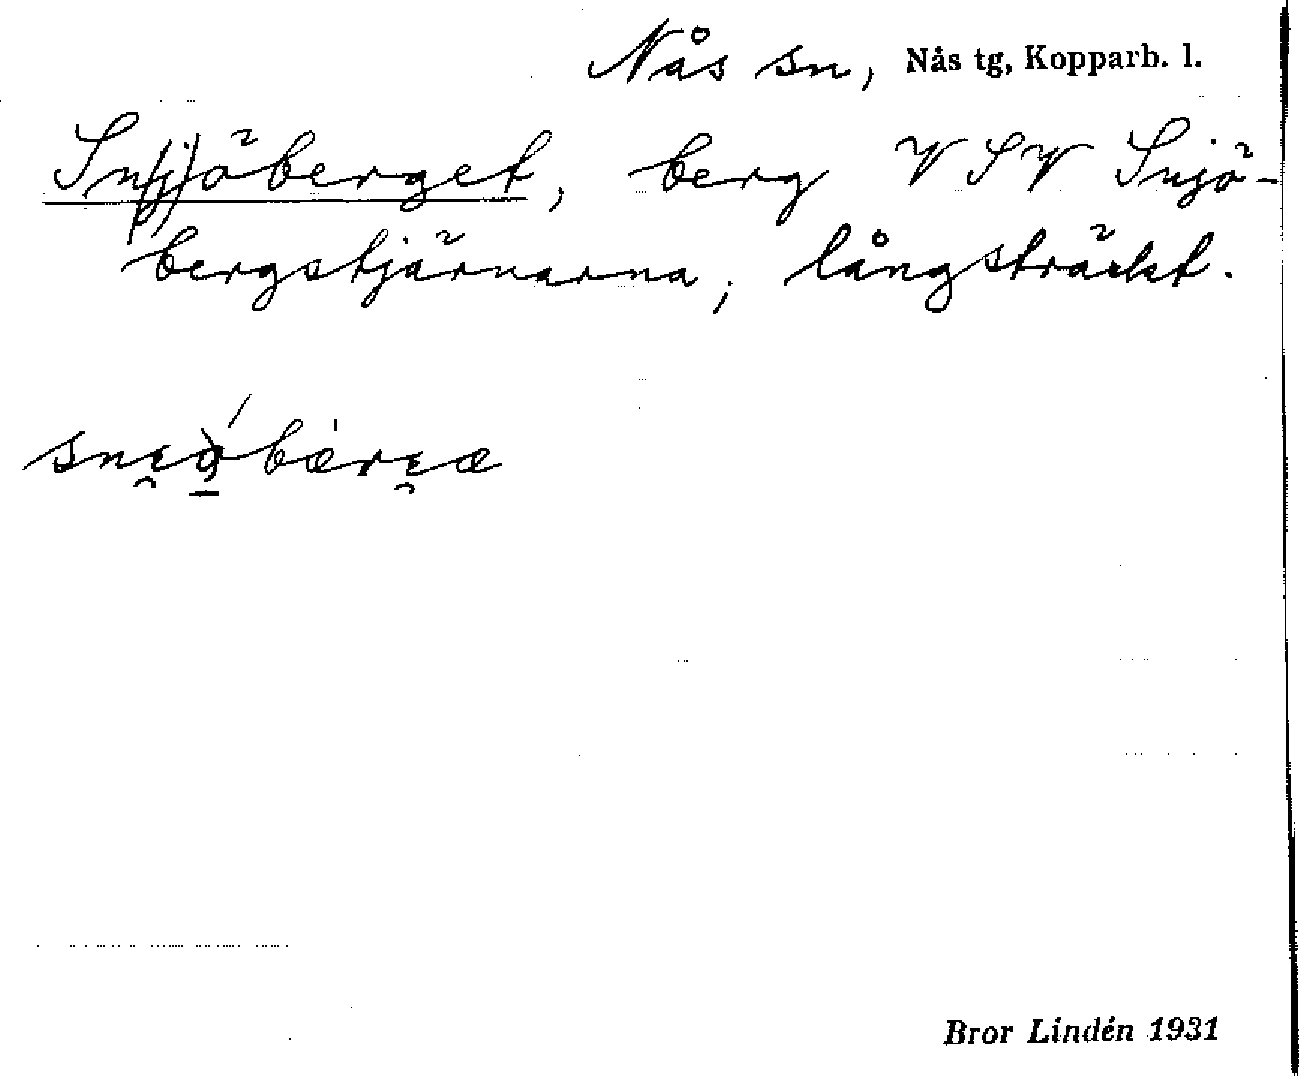 Nås sn, Nås tg, Kopparb. l.
Sn(j)öberget, berg VSV Snjö-
bergstjärnarna, långsträckt.
Bror Lindén 1931